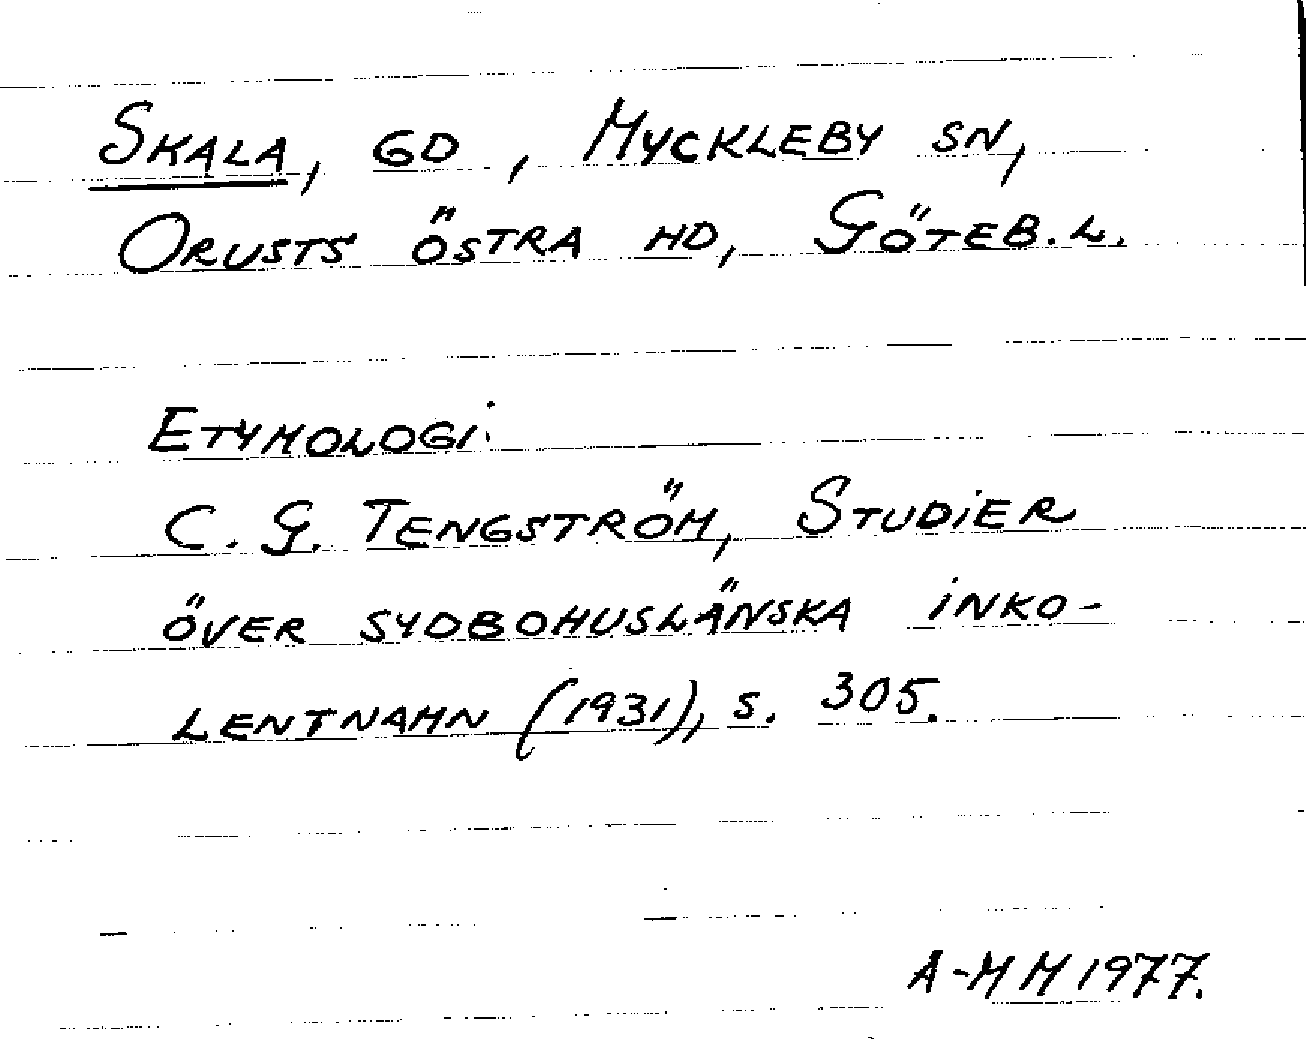 SKALA, GD, MYCKLEBY SN,
ORUSTS ÖSTRA HD, GÖTEB. L.
ETYMOLOGI:
C. G. TENGSTRÖM, STUDIER
ÖVER SYDBOHUSLÄNSKA INKO-
LENTNAMN (1931), S. 305.
A-MM 1977.